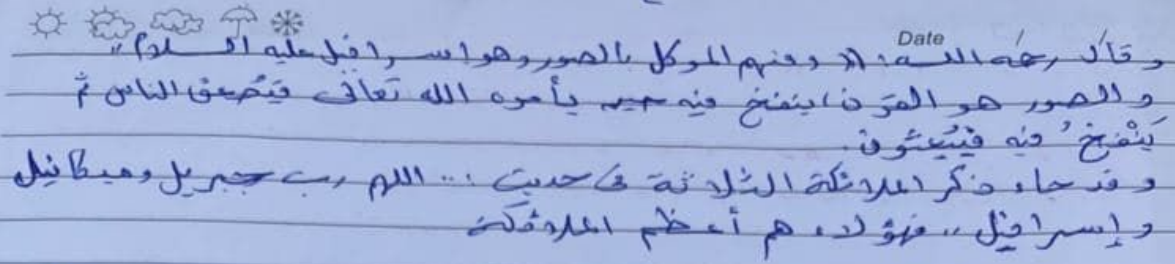 Date / /
وقال رحمه الله: (( ومنهم الموكل بالصور وهو اسرافيل عليه السلام ))
والصور هو القرن، ينفخ فيه حين يأمره الله تعالى فيُصعق الناس ثم
يَنْفخُ فيه فيُبعثون.
وقد جاء ذكر الملائكة الثلاثة في حديث : ,, اللهم رب جبريل وميكائيل
وإسرافيل ,, فهؤلاء هم أعظم الملائكة